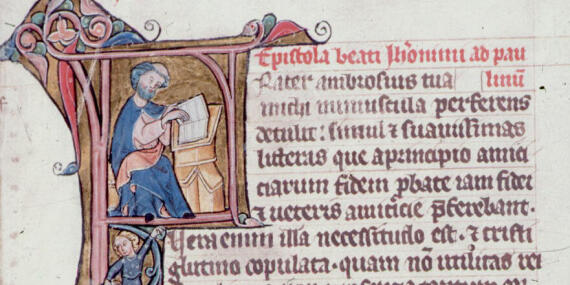 Epistola beati Ih'onimi ad pau
Frater ambrosius tua linū
michi munuscula perferens
detulit: simul ⁊ suauissimas
litteras que a principio amici
ciarum fidem ꝓbate iam fidei
⁊ ueteris amicicie p̄ferebant.
Uera enim illa necessitudo est. ⁊ cristi
glutino copulata. quam nō utilitas rei